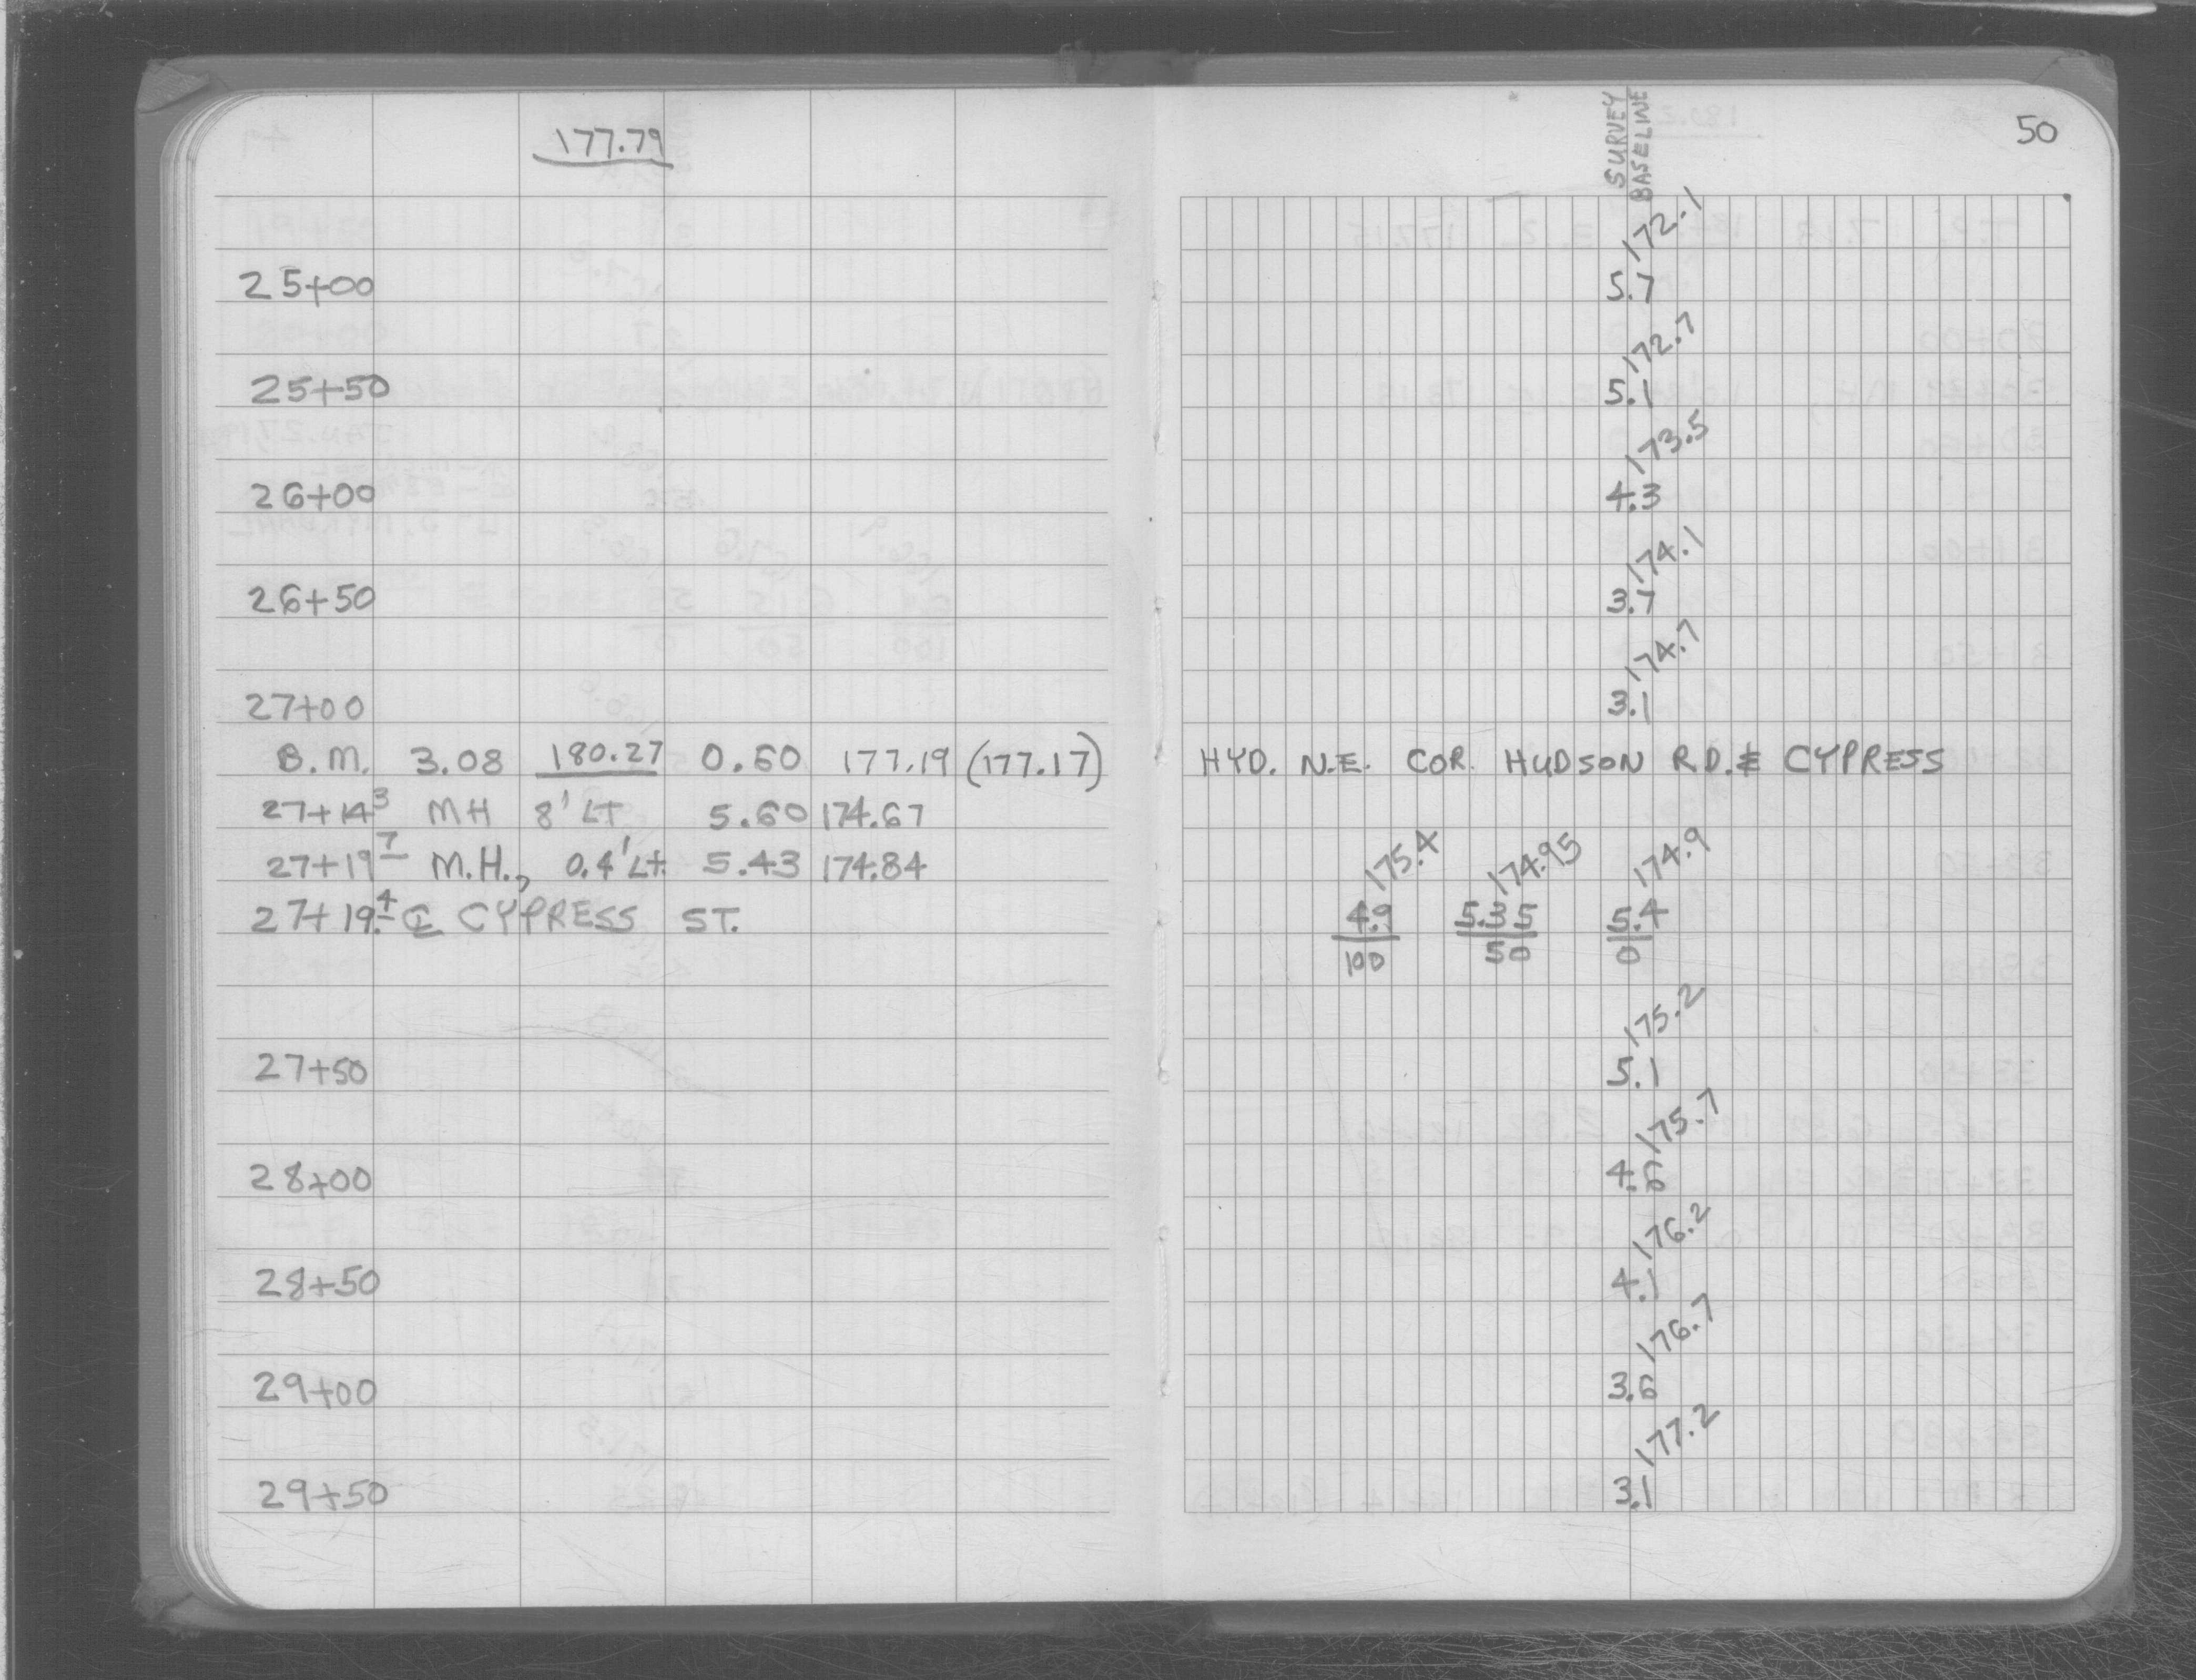 177.79
SURVEY
BASELINE
50
172.1
25+00 5.7
172.7
25+50 5.1
173.5
26+00 4.3
174.1
26+50 3.7
174.7
27+00 3.1
B.M. 3.08 180.27 0.60 177.19 (177.17) HYD. N.E. COR. HUDSON RD. & CYPRESS
27+14³ MH 8' LT 5.60 174.67
27+19⁷ M.H., 0.4' Lt. 5.43 174.84
175.4 174.95 174.9
27+19.⁴ ℄ CYPRESS ST. 4.9 5.35 5.4
100 50 0
175.2
27+50 5.1
175.7
28+00 4.6
176.2
28+50 4.1
176.7
29+00 3.6
177.2
29+50 3.1